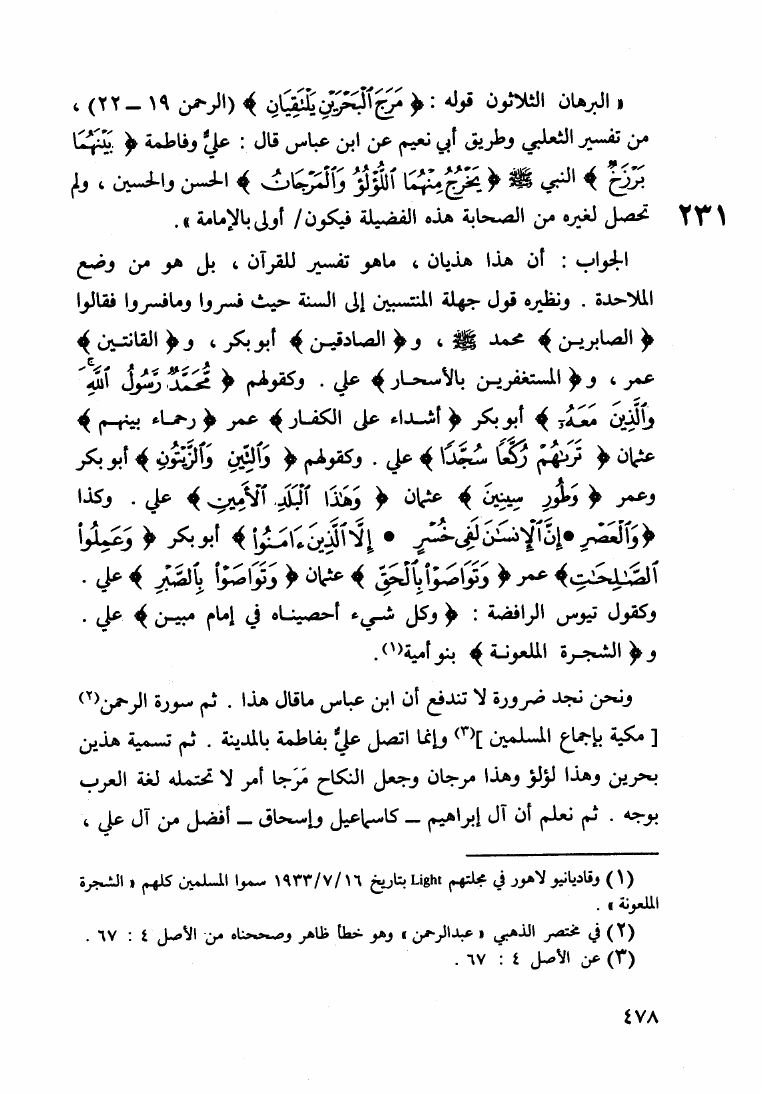 « البرهان الثلاثون قوله : ﴿ مَرَجَ ٱلْبَحْرَيْنِ يَلْتَقِيَانِ ﴾ (الرحمن ١٩ ــ ٢٢) ،
من تفسير الثعلبي وطريق أبي نعيم عن ابن عباس قال : عليٌّ وفاطمة ﴿ بَيْنَهُمَا
بَرْزَخٌ ﴾ النبي ﷺ ﴿ يَخْرُجُ مِنْهُمَا ٱللُّؤْلُؤُ وَٱلْمَرْجَانُ ﴾ الحسن والحسين ، ولم
تحصل لغيره من الصحابة هذه الفضيلة فيكون/ أولى بالإمامة » .
٢٣١
الجواب : أن هذا هذيان ، ماهو تفسير للقرآن ، بل هو من وضع
الملاحدة . ونظيره قول جهلة المنتسبين إلى السنة حيث فسروا ومافسروا فقالوا
﴿ الصابرين ﴾ محمد ﷺ ، و﴿ الصادقين ﴾ أبو بكر ، و﴿ القانتين ﴾
عمر ، و﴿ المستغفرين بالأسحار ﴾ علي . وكقولهم ﴿ مُّحَمَّدٌ رَّسُولُ ٱللَّهِ ۚ
وَٱلَّذِينَ مَعَهُۥٓ ﴾ أبو بكر ﴿ أشداء على الكفار ﴾ عمر ﴿ رحماء بينهم ﴾
عثمان ﴿ تَرَىٰهُمْ رُكَّعًا سُجَّدًا ﴾ علي . وكقولهم ﴿ وَٱلتِّينِ وَٱلزَّيْتُونِ ﴾ أبو بكر
وعمر ﴿ وَطُورِ سِينِينَ ﴾ عثمان ﴿ وَهَٰذَا ٱلْبَلَدِ ٱلْأَمِينِ ﴾ علي . وكذا
﴿ وَٱلْعَصْرِ • إِنَّ ٱلْإِنسَٰنَ لَفِى خُسْرٍ • إِلَّا ٱلَّذِينَ ءَامَنُوا۟ ﴾ أبو بكر ﴿ وَعَمِلُوا۟
ٱلصَّٰلِحَٰتِ ﴾ عمر ﴿ وَتَوَاصَوْا۟ بِٱلْحَقِّ ﴾ عثمان ﴿ وَتَوَاصَوْا۟ بِٱلصَّبْرِ ﴾ علي .
وكقول تيوس الرافضة : ﴿ وكل شيء أحصيناه في إمام مبين ﴾ علي .
و﴿ الشجرة الملعونة ﴾ بنو أمية(١).
ونحن نجد ضرورة لا تندفع أن ابن عباس ماقال هذا . ثم سورة الرحمن(٢)
[ مكية بإجماع المسلمين ](٣) وإنما اتصل عليٌّ بفاطمة بالمدينة . ثم تسمية هذين
بحرين وهذا لؤلؤ وهذا مرجان وجعل النكاح مَرَجا أمر لا تحتمله لغة العرب
بوجه . ثم نعلم أن آل إبراهيم ــ كاسماعيل وإسحاق ــ أفضل من آل علي ،
(١) وقاديانيو لاهور في مجلتهم Light بتاريخ ١٩٣٣/٧/١٦ سموا المسلمين كلهم « الشجرة
الملعونة » .
(٢) في مختصر الذهبي « عبدالرحمن » وهو خطأ ظاهر وصححناه من الأصل ٤ : ٦٧ .
(٣) عن الأصل ٤ : ٦٧ .
٤٧٨